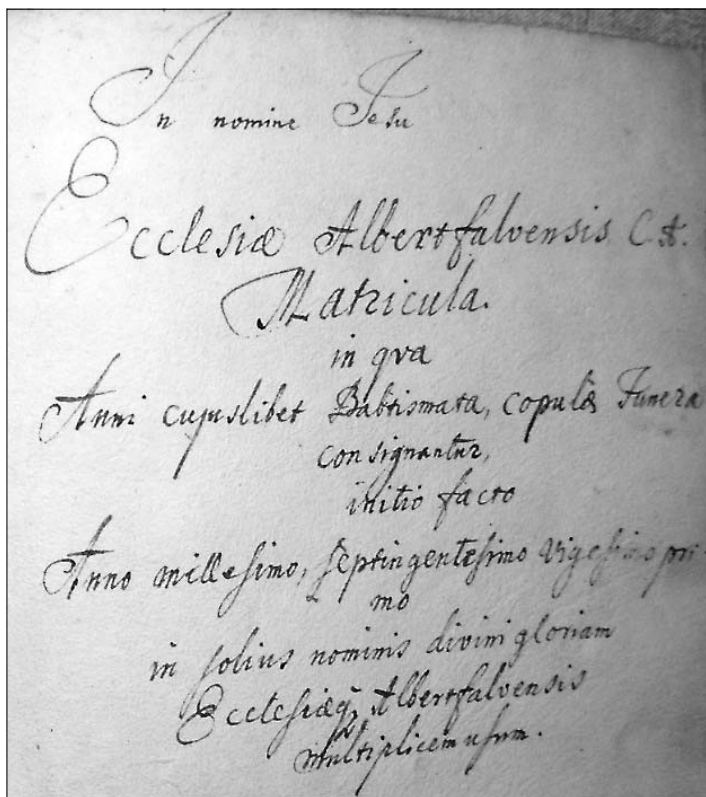 In nomine Jesu
Ecclesiæ Albertfalvensis C. A.
Matricula.
in qva
Anni cujuslibet Babtismata, copulæ Funera
consignantur,
initio facto
Anno millesimo, septingentesimo vigesimo pri
mo
in solius nominis divini gloriam
Ecclesiæq, Albertfalvensis
multiplicem usum.